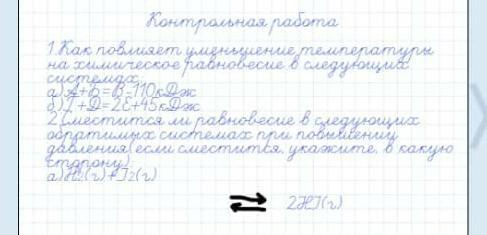 Контрольная работа
1.Как повлияет уменьшение температуры
на химическое равновесие в следующих
системах:
а)А+Б=В-110кДж
б)Г+Д=2Е+45кДж
2.Сместится ли равновесие в следующих
обратимых системах при повышении
давления(если сместится, укажите, в какую
сторону)
а)H₂(г)+I₂(г)
⇌ 2HI(г)